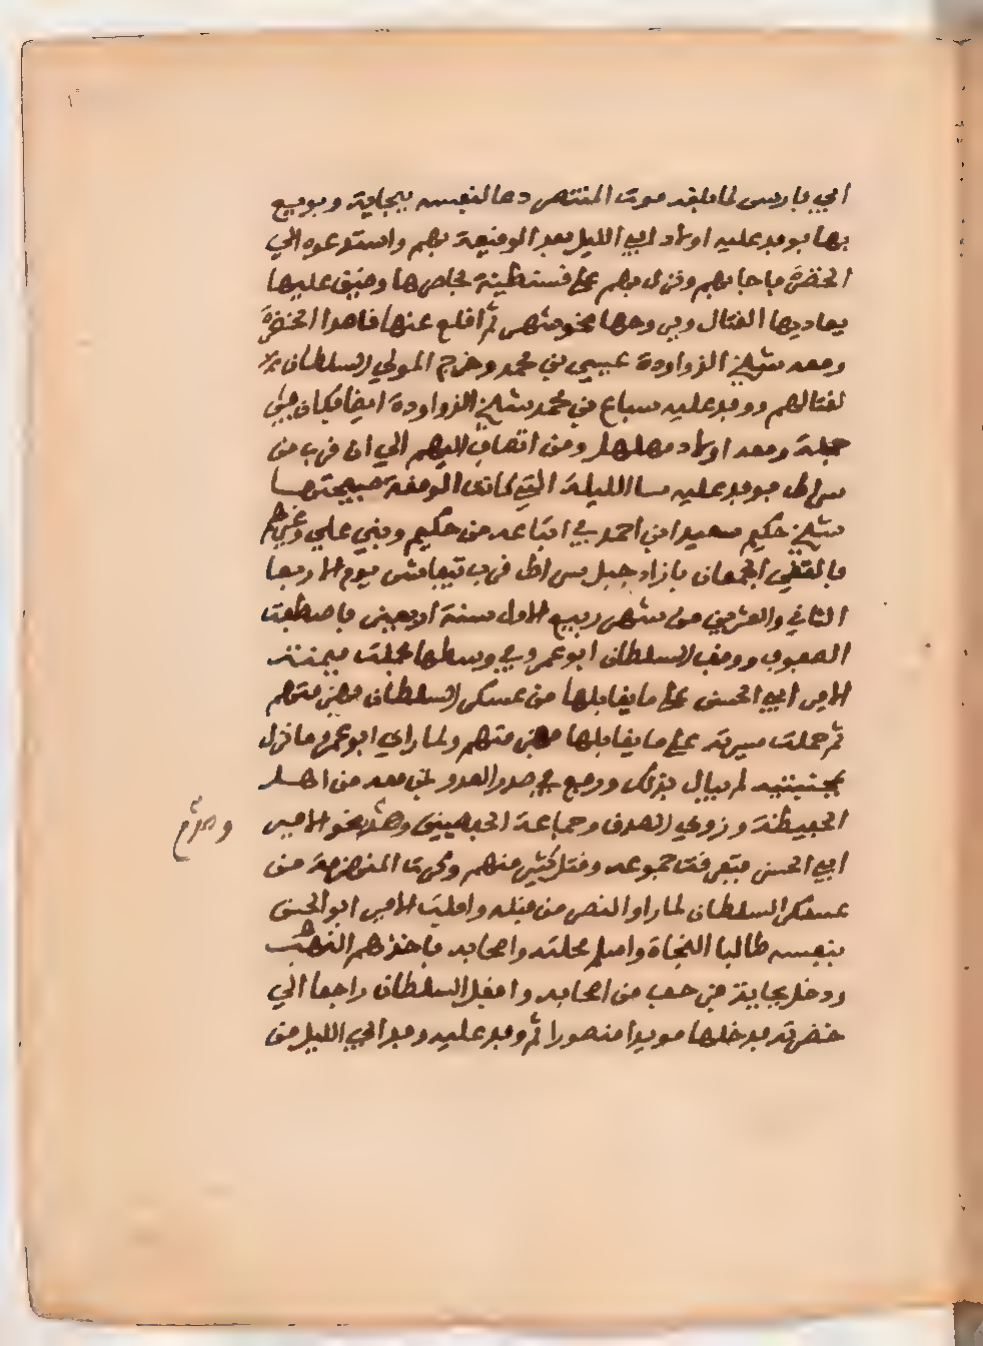 ابي فارس لما بلغه موت المنتصر دعا لنفسه ببجاية وبويع
بها فوفد عليه اولاد ابي الليل بعد الوقيعة بهم واستدعوه الي
الحضرة فاجابهم ونزل بهم علي قسنطينة فحاصرها وضيق عليها
يغاديها القتال ويراوحها نحو شهر ثم اقلع عنها قاصدا الحضرة
ومعه شيخ الزواودة عيسي بن محمد وخرج المولي السلطان
لقتالهم ووفد عليه سباع بن محمد شيخ الزواودة ايضا فكان في
جملة ومعه اولاد مهلهل ومن انضاف اليهم الي ان قرب من
سراط فوفد عليه مسا الليلة التي كانت الوقعة صبيحتها
شيخ حكيم سعيد ابن احمد في اتباعه من حكيم وبني علي وغيرهم
فالتقي الجمعان بازاء جبل سراط قرب تيفاش يوم الاربعا
الثاني والعشرين من شهر ربيع الاول سنة اربعين فاصطفت
الصفوف ووقف السلطان ابو عمرو في وسطها فحملت ميمنة
الامير ابي الحسن علي ما يقابلها من عسكر السلطان فهزمتهم
ثم حملت ميسرته علي ما يقابلها فهزمتهم ولما راي ابو عمرو ما نزل
بجنبتيه لم يبال بذلك ودفع في صدر العدو بمن معه من اهل
الحفيظة وذوي الصدق وجماعة الحفصيين وصمد نحو الامير
وصرم
ابي الحسن فتفرقت جموعه وقتل كثير منهم وكرت المنهزمة من
عسكر السلطان لما راوا النصر من قبله وافلت الامير ابو الحسن
بنفسه طالبا النجاة واسلم محلته واصحابه فاخذهم النهب
ودخل بجاية فيمن خف من اصحابه واقبل السلطان راجعا الي
حضرته فدخلها مويدا منصورا ثم وفد عليه وفد ابي الليل من